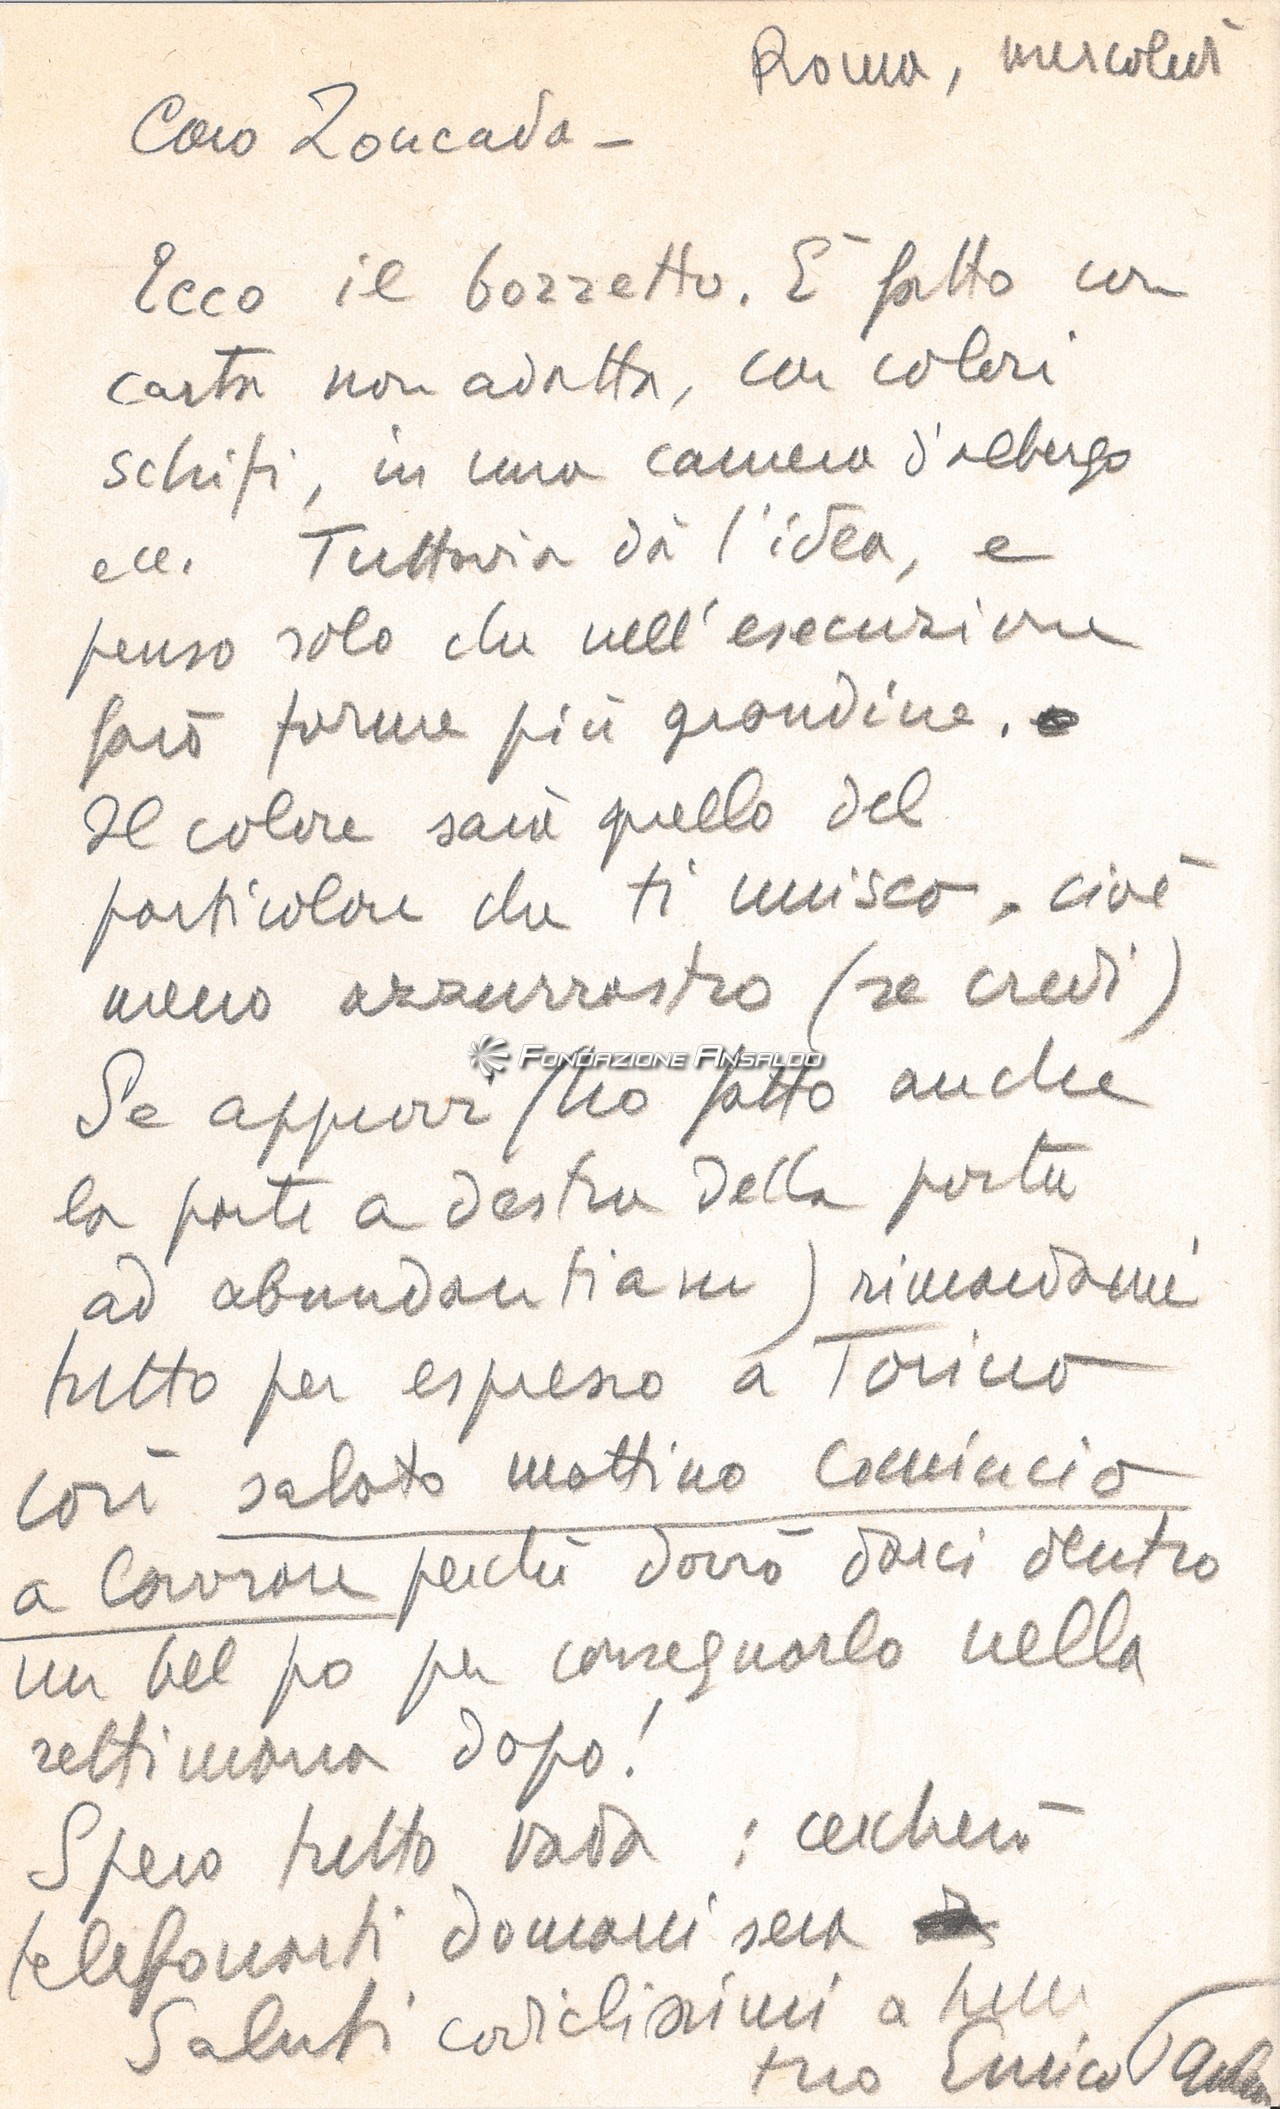 Roma, mercoledì
Caro Zoncada –
Ecco il bozzetto. È fatto con
carta non adatta, con colori
schifi, in una camera d'albergo
ecc. Tuttavia dà l'idea, e
penso solo che nell'esecuzione
farò forme più grandine.
Il colore sarà quello del
particolare che ti unisco, cioè
meno azzurrastro (se credi)
FONDAZIONE ANSALDO
Se approvi (ho fatto anche
la parte a destra della porta
ad abundantiam) rimandami
tutto per espresso a Torino
così sabato mattino comincio
a lavorare perché dovrò darci dentro
un bel po per consegnarlo nella
settimana dopo!
Spero tutto vada; cercherò
telefonarti domani sera
Saluti cordialissimi a tutti
tuo Enrico